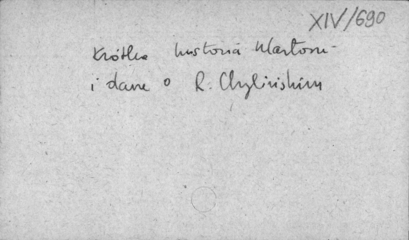 XIV/690
Krótka historia klasztoru
i dane o R. Chylińskim